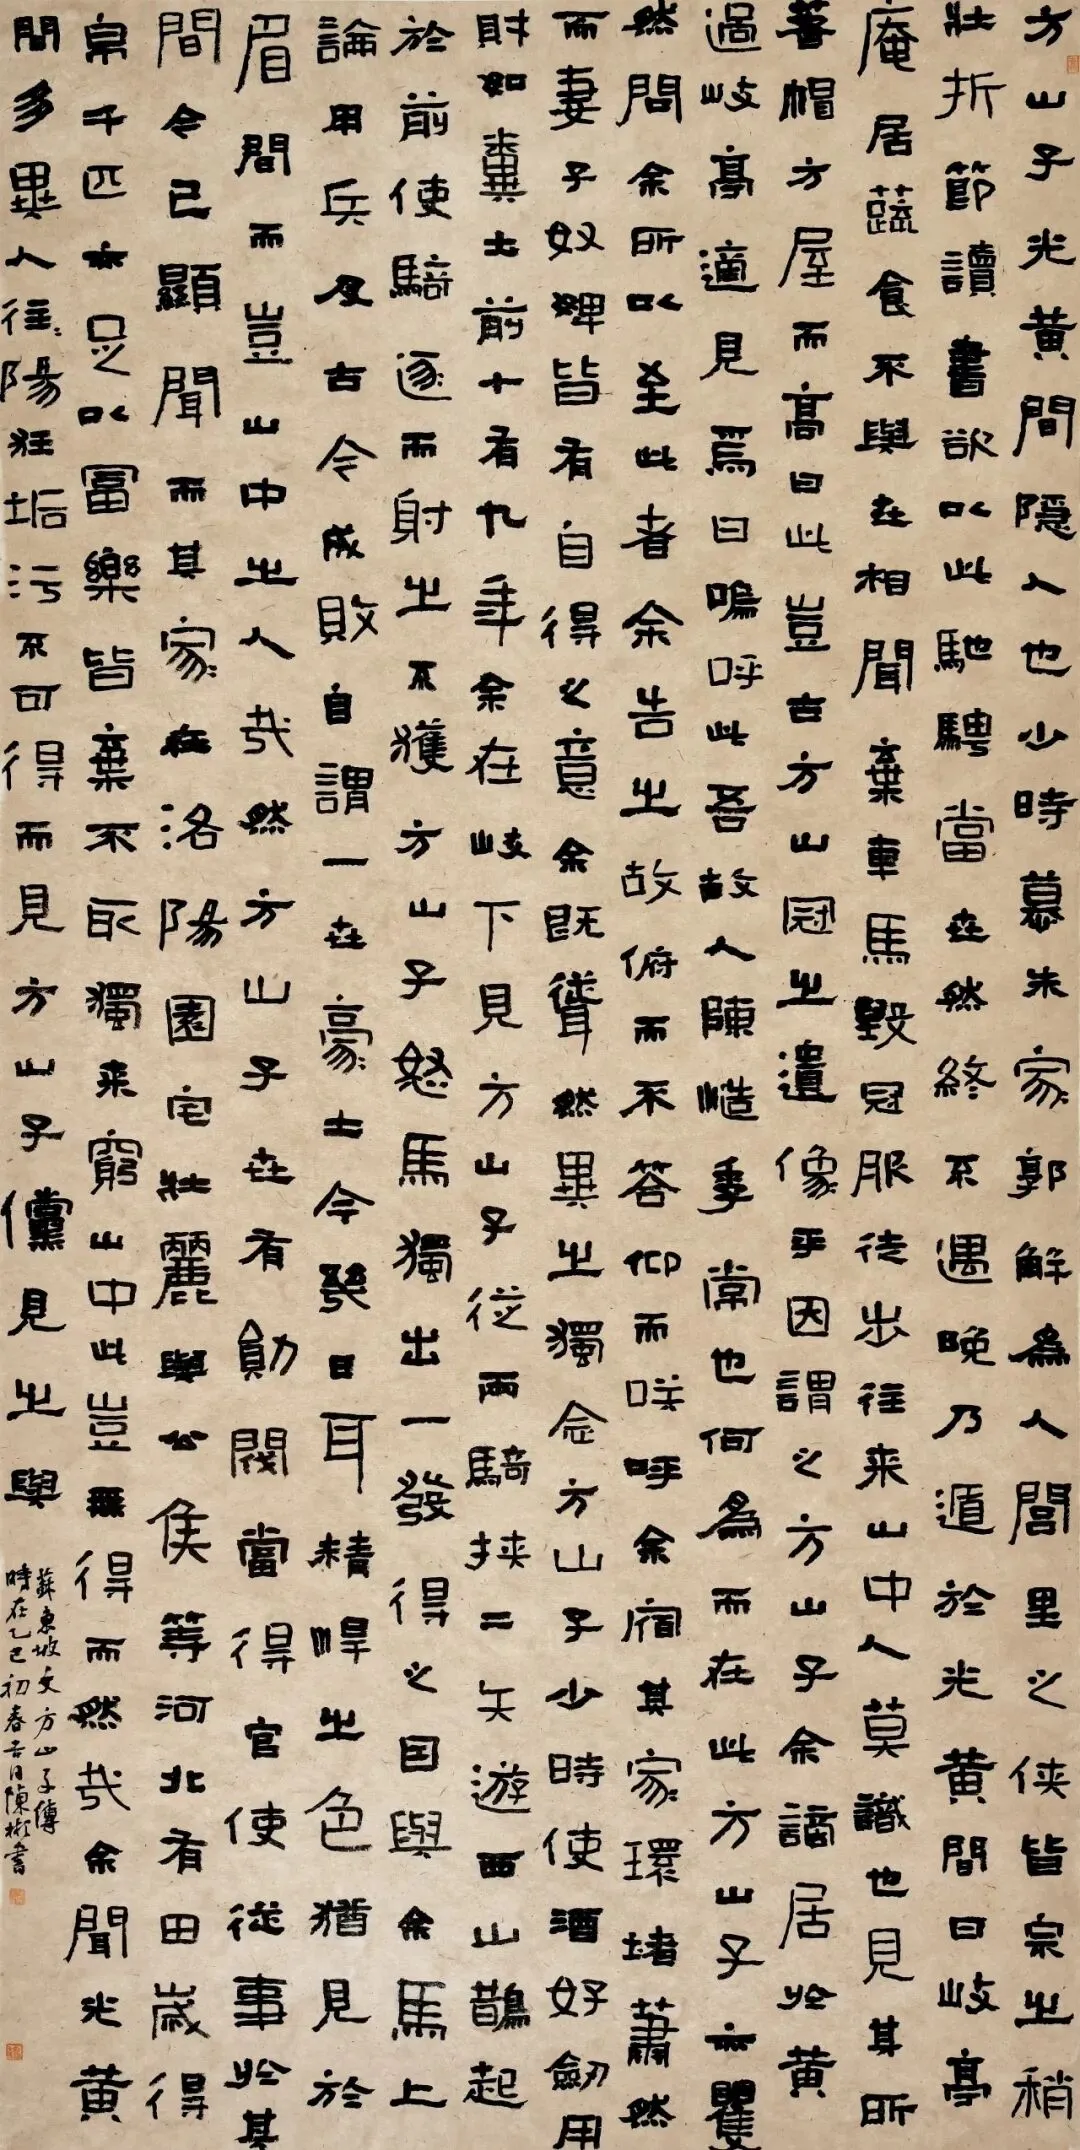 方山子光黃間隱人也少時慕朱家郭解為人閭里之俠皆宗之稍
壯折節讀書欲以此馳騁當世然終不遇晚乃遁於光黃間曰岐亭
庵居蔬食不與世相聞棄車馬毀冠服徒步往来山中人莫識也見其所
著帽方屋而高曰此豈古方山冠之遺像乎因謂之方山子余謫居於黃
過岐亭適見焉曰嗚呼此吾故人陳慥季常也何為而在此方山子亦矍
然問余所以至此者余告之故俯而不答仰而咲呼余宿其家環堵蕭然
而妻子奴婢皆有自得之意余既聳然異之獨念方山子少時使酒好劍用
財如糞土前十有九年余在岐下見方山子從兩騎挾二矢遊西山鵲起
於前使騎逐而射之不獲方山子怒馬獨出一發得之因與余馬上
論用兵及古今成敗自謂一世豪士今幾日耳精悍之色猶見於
眉間而豈山中之人哉然方山子世有勛閥當得官使從事於其
間今已顯聞而其家在洛陽園宅壯麗與公侯等河北有田歲得
帛千匹亦足以富樂皆棄不取獨来窮山中此豈無得而然哉余聞光黃
間多異人往〻陽狂垢污不可得而見方山子儻見之與
蘇東坡文方山子傳
時在乙巳初春吉日陳彬書